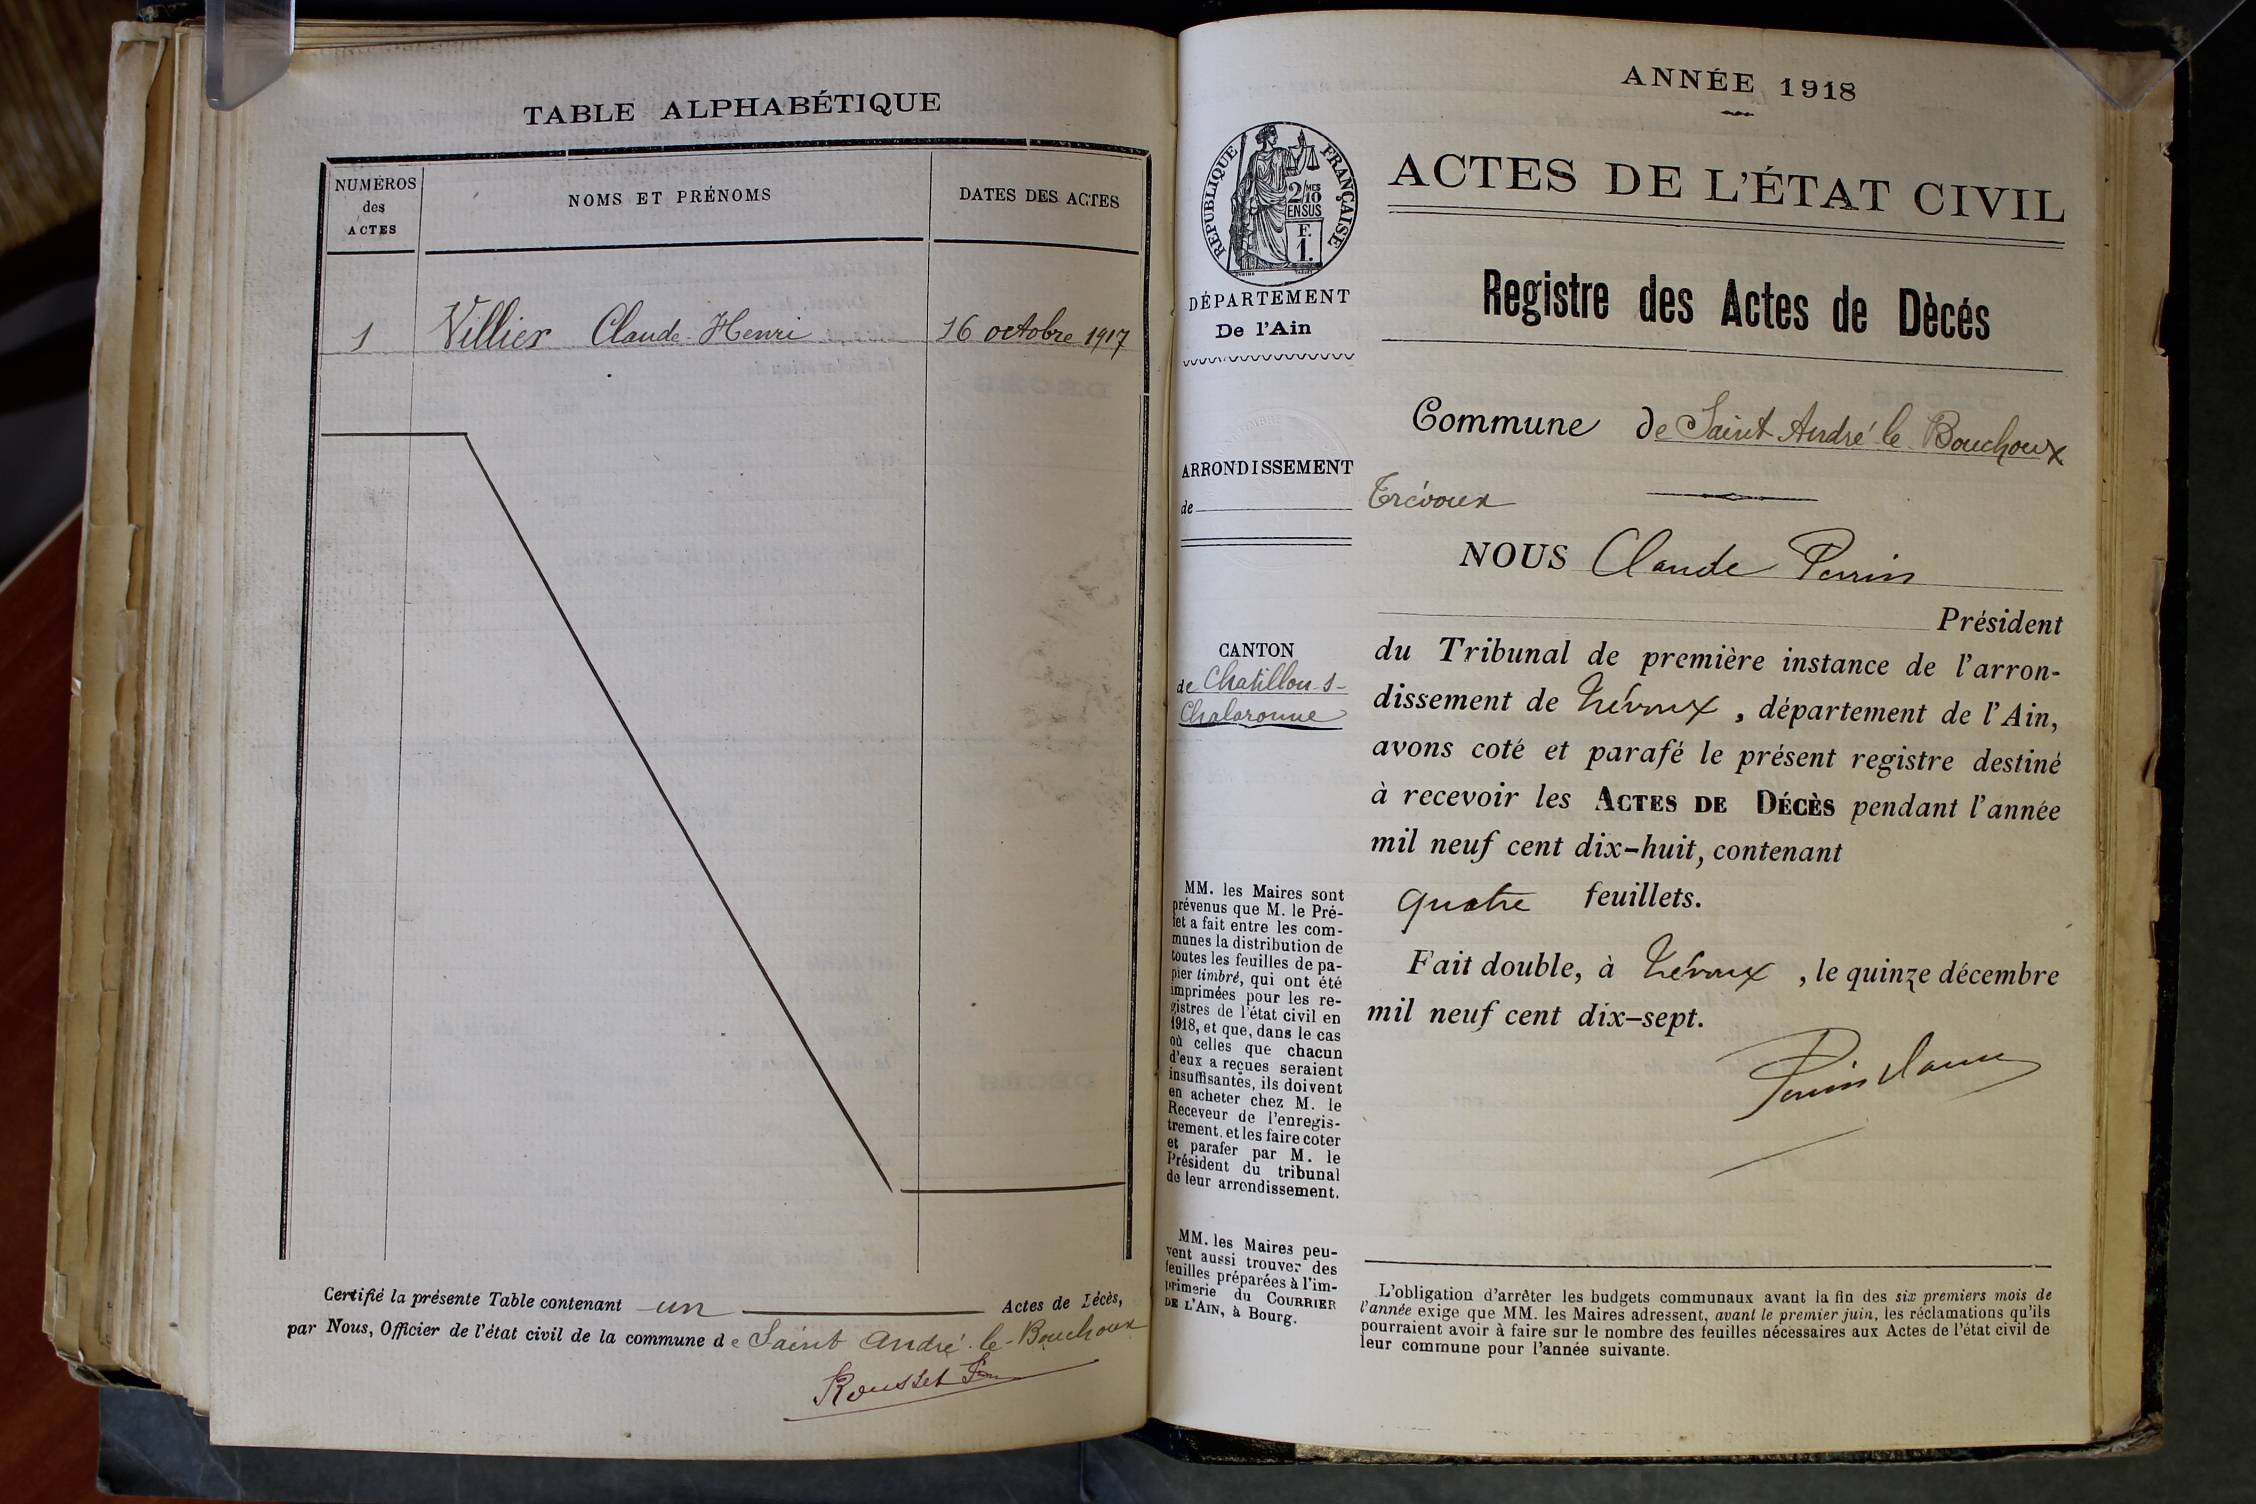 TABLE ALPHABÉTIQUE
NUMÉROS
des
ACTES
NOMS ET PRÉNOMS
DATES DES ACTES
1 Villier Claude-Henri 16 octobre 1917
Certifié la présente Table contenant un Actes de Décès,
par Nous, Officier de l'état civil de la commune de Saint André-le-Bouchoux
Rousset
ANNÉE 1918
RÉPUBLIQUE FRANÇAISE
2/10 MES
EN SUS
F.
1.
DÉPARTEMENT
De l'Ain
ARRONDISSEMENT
de Trévoux
CANTON
de Chatillon-s-
Chalaronne
MM. les Maires sont
prévenus que M. le Pré-
fet a fait entre les com-
munes la distribution de
toutes les feuilles de pa-
pier timbré, qui ont été
imprimées pour les re-
gistres de l'état civil en
1918, et que, dans le cas
où celles que chacun
d'eux a reçues seraient
insuffisantes, ils doivent
en acheter chez M. le
Receveur de l'enregis-
trement, et les faire coter
et parafer par M. le
Président du tribunal
de leur arrondissement.
MM. les Maires peu-
vent aussi trouver des
feuilles préparées à l'im-
primerie du COURRIER
DE L'AIN, à Bourg.
ACTES DE L'ÉTAT CIVIL
Registre des Actes de Dècés
Commune de Saint André le Bouchoux
NOUS Claude Perrin
Président
du Tribunal de première instance de l'arron-
dissement de Trévoux, département de l'Ain,
avons coté et parafé le présent registre destiné
à recevoir les ACTES DE DÉCÈS pendant l'année
mil neuf cent dix-huit, contenant
quatre feuillets.
Fait double, à Trévoux, le quinze décembre
mil neuf cent dix-sept.
Perrin Claude
L'obligation d'arrêter les budgets communaux avant la fin des six premiers mois de
l'année exige que MM. les Maires adressent, avant le premier juin, les réclamations qu'ils
pourraient avoir à faire sur le nombre des feuilles nécessaires aux Actes de l'état civil de
leur commune pour l'année suivante.